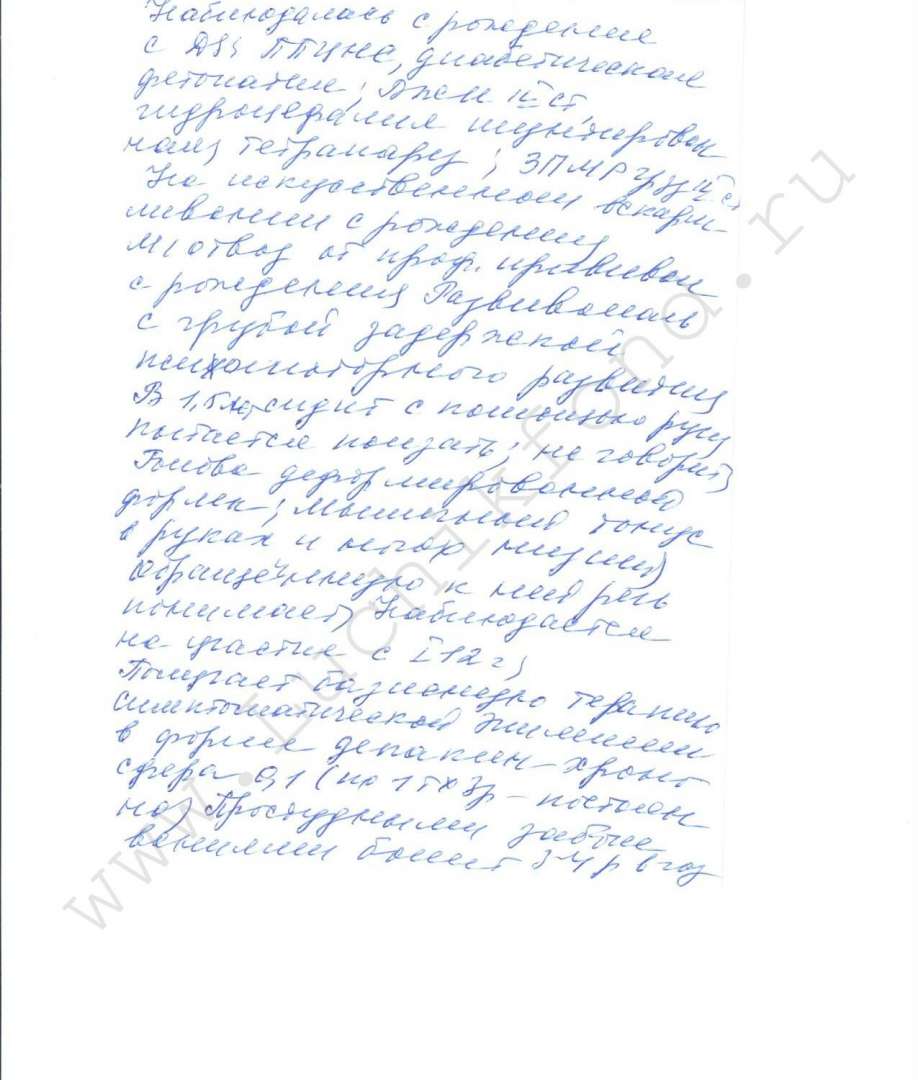 Наблюдалась с рождение
с Дз: ППЦНС, диабетическая
фетопатия; ВЖК IV ст,
гидроцефалия шунтирован
ная, тетрапарез; ЗПМР
На искуственном вскарм-
ливании с рождения,
М/отвод от проф. прививок
с рождения, Развивалась
с грубой задержкой
психомоторного развития
В 1,5 г сидит с помощью рук,
пытается ползать; не говорит,
Голова деформированной
формы; Мышечный тонус
в руках и ногах низкий,
обращённую к ней речь
понимает, Наблюдается
на участке с I 12 г,
Получает базисную терапию
симптоматической эпилепсии
в форме депакин-хроно
сфера 0,1 (по 1 т х 3 р - постоян
но, Простудными заболе
ваниями болеет 3-4 р в год
www.Luchikfond.ru